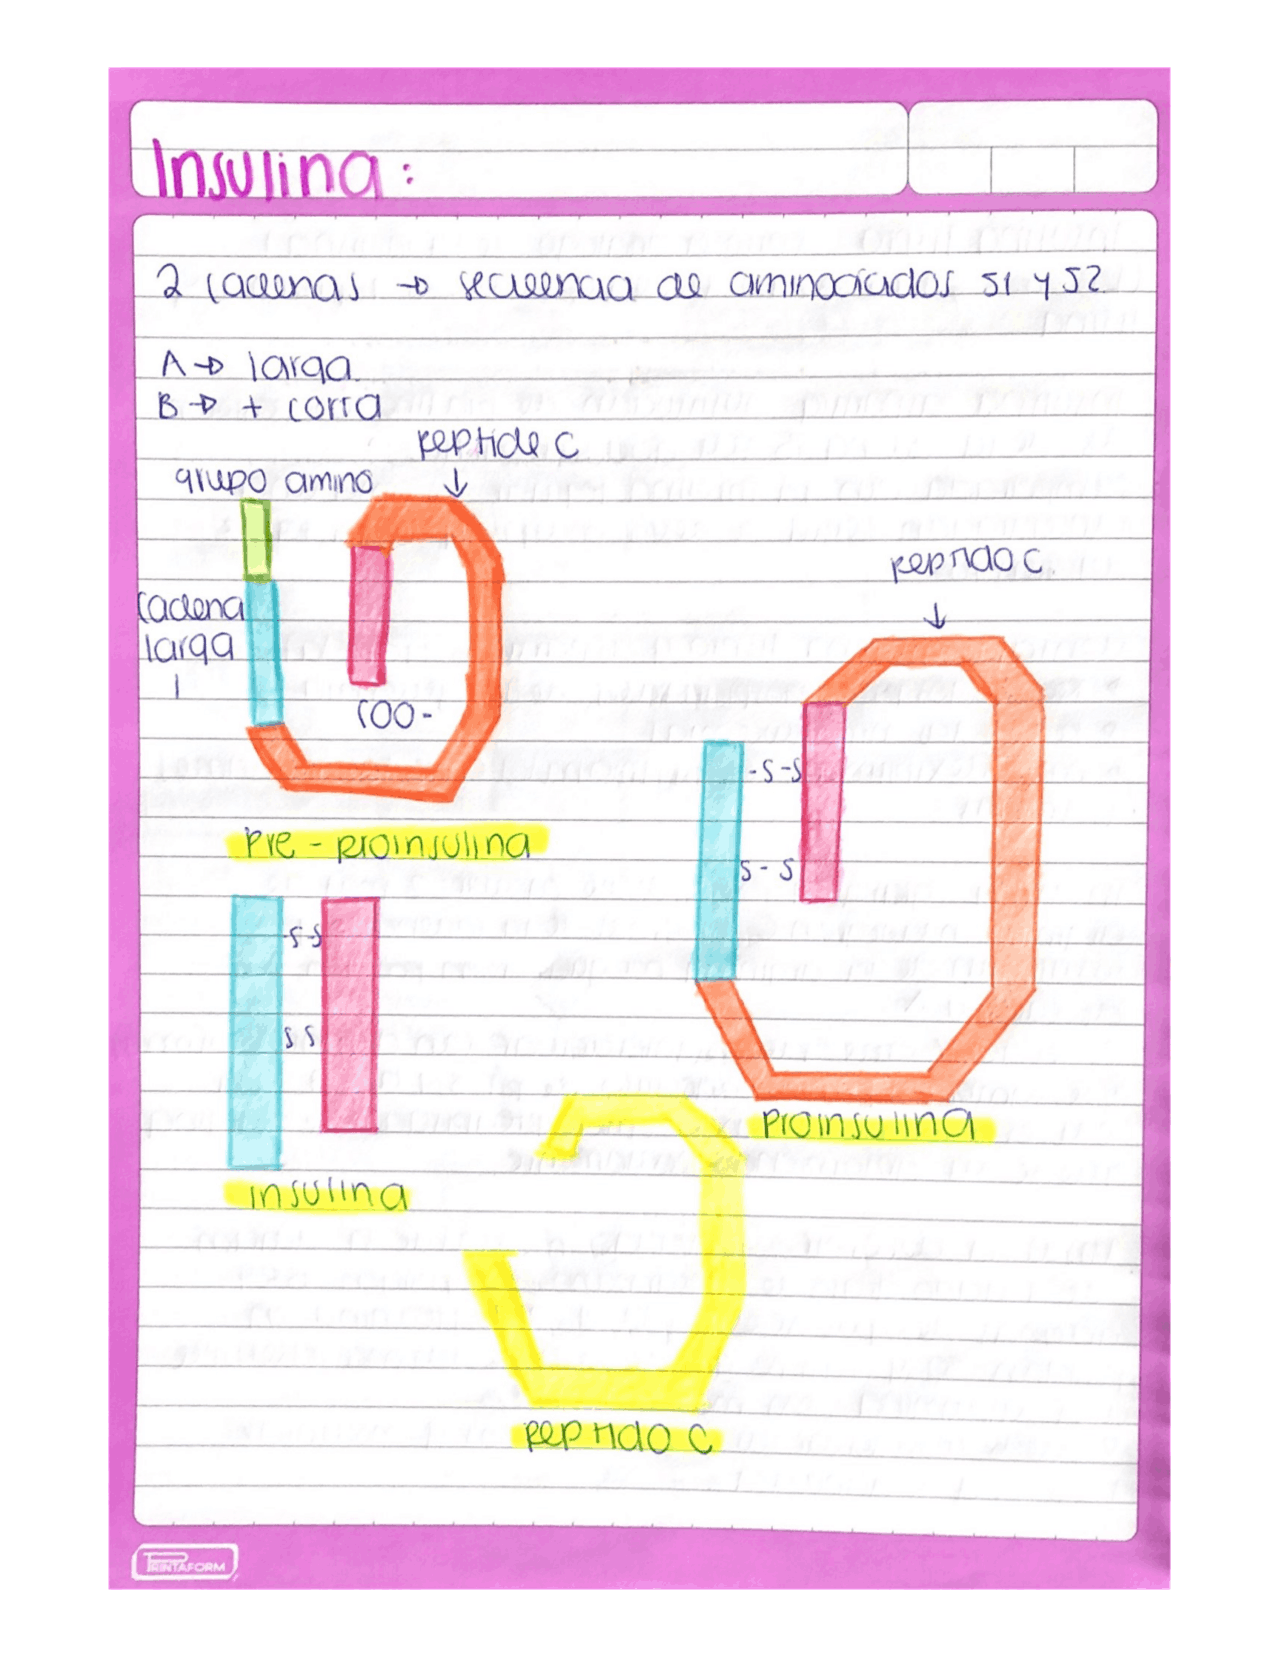 Insulina:
2 cadenas → secuencia de aminoácidos 51 y 52
A → larga
B → + corta
peptide C
grupo amino
peptido C.
cadena
larga
COO-
-S-S
Pre-proinsulina
S-S
-S-S
S S
proinsulina
insulina
peptido C
PRINTAFORM